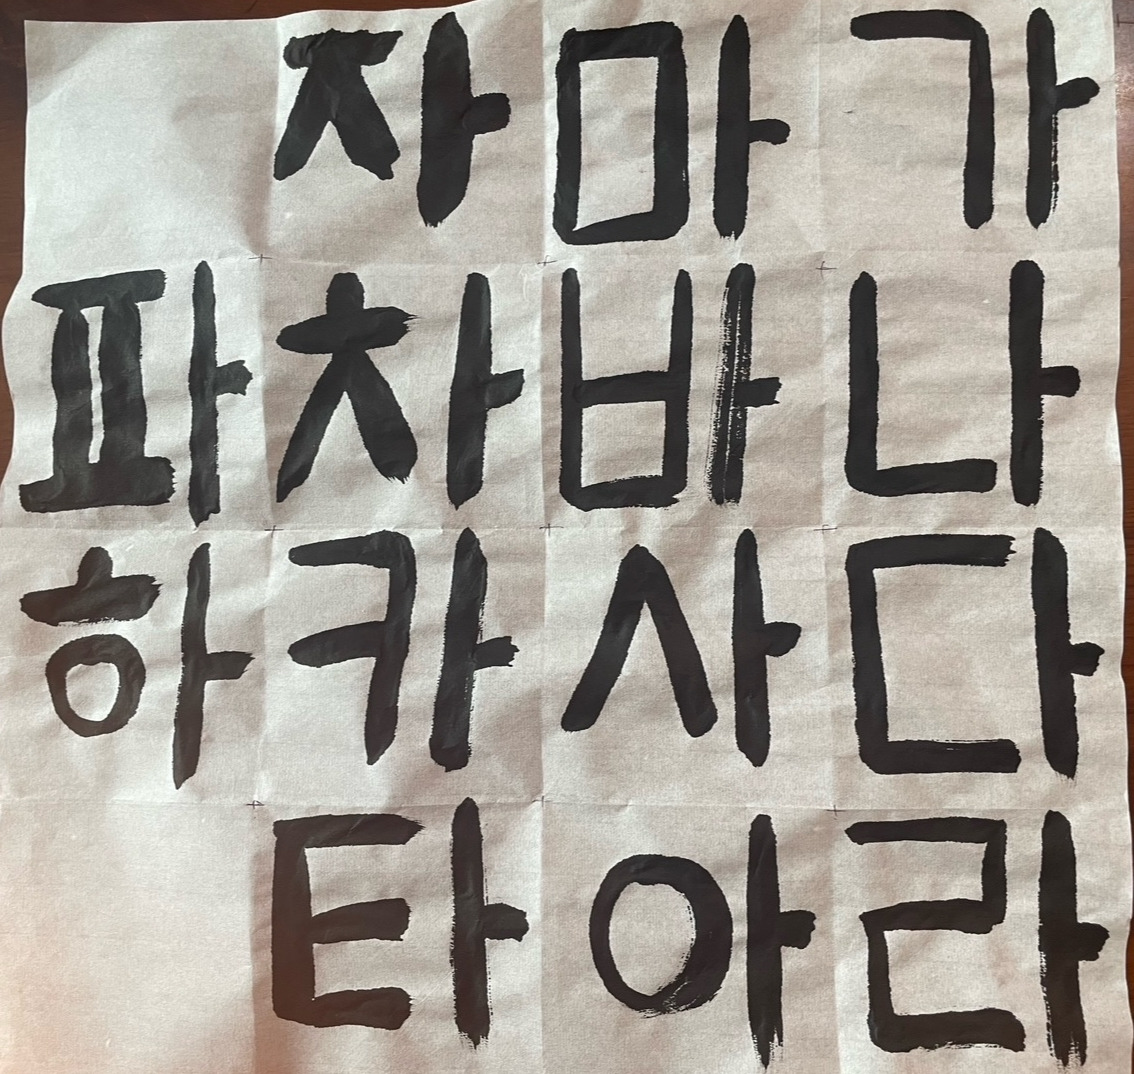 가나다라
마바사아
자차카타
파하